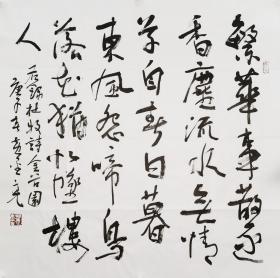 繁華事散逐
香塵流水無情
草自春日暮
東風怨啼鳥
落花猶似墜樓
人
杜牧詩金谷園
庚子